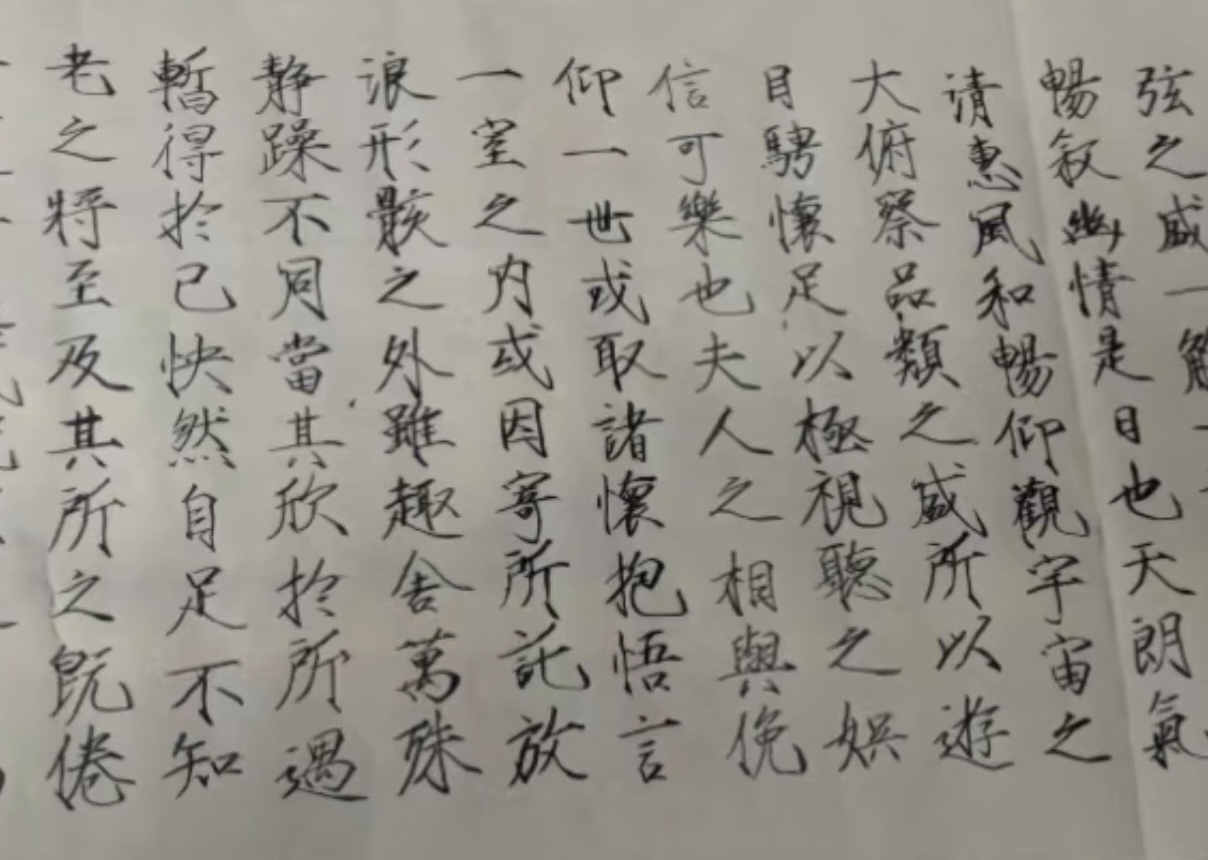 弦之盛一觴一
暢叙幽情是日也天朗氣
清惠風和暢仰觀宇宙之
大俯察品類之盛所以遊
目騁懷足以極視聽之娛
信可樂也夫人之相與俛
仰一世或取諸懷抱悟言
一室之内或因寄所託放
浪形骸之外雖趣舍萬殊
静躁不同當其欣於所遇
暫得於己怏然自足不知
老之將至及其所之既倦